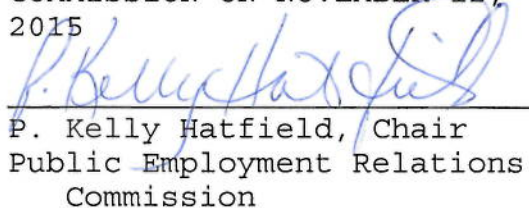 2015
P. Kelly Hatfield
P. Kelly Hatfield, Chair
Public Employment Relations
Commission